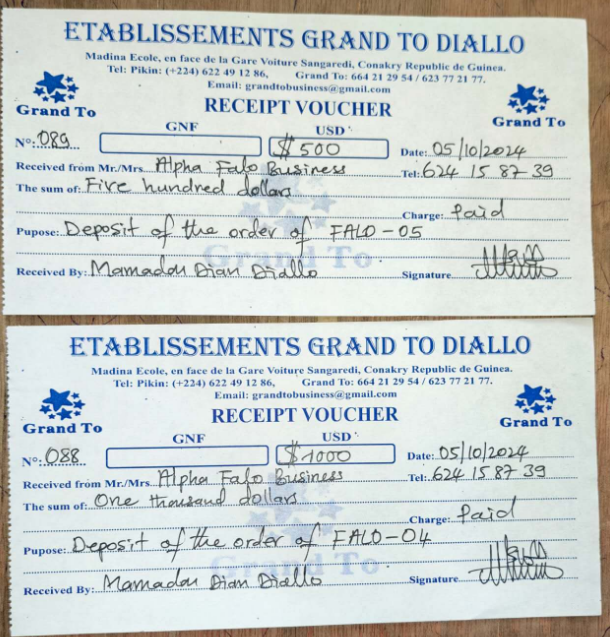 ETABLISSEMENTS GRAND TO DIALLO
Madina Ecole, en face de la Gare Voiture Sangaredi, Conakry Republic de Guinea.
Tel: Pikin: (+224) 622 49 12 86, Grand To: 664 21 29 54 / 623 77 21 77.
Email: grandtobusiness@gmail.com
Grand To RECEIPT VOUCHER Grand To
GNF USD
Nº: 089 $ 500 Date: 05/10/2024
Received from Mr./Mrs. Alpha Falo Business Tel: 624 15 87 39
The sum of: Five hundred dollars
Charge: Paid
Pupose: Deposit of the order of FALO-05
Grand To
Received By: Mamadou Dian Diallo Signature
ETABLISSEMENTS GRAND TO DIALLO
Madina Ecole, en face de la Gare Voiture Sangaredi, Conakry Republic de Guinea.
Tel: Pikin: (+224) 622 49 12 86, Grand To: 664 21 29 54 / 623 77 21 77.
Email: grandtobusiness@gmail.com
Grand To RECEIPT VOUCHER Grand To
GNF USD
Nº: 088 $ 1000 Date: 05/10/2024
Received from Mr./Mrs. Alpha Falo Business Tel: 624 15 87 39
The sum of: One thousand dollars
Charge: Paid
Pupose: Deposit of the order of FALO-04
Grand To
Received By: Mamadou Dian Diallo Signature